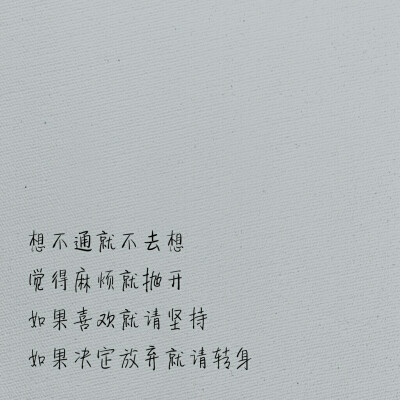 想不通就不去想
觉得麻烦就抛开
如果喜欢就请坚持
如果决定放弃就请转身